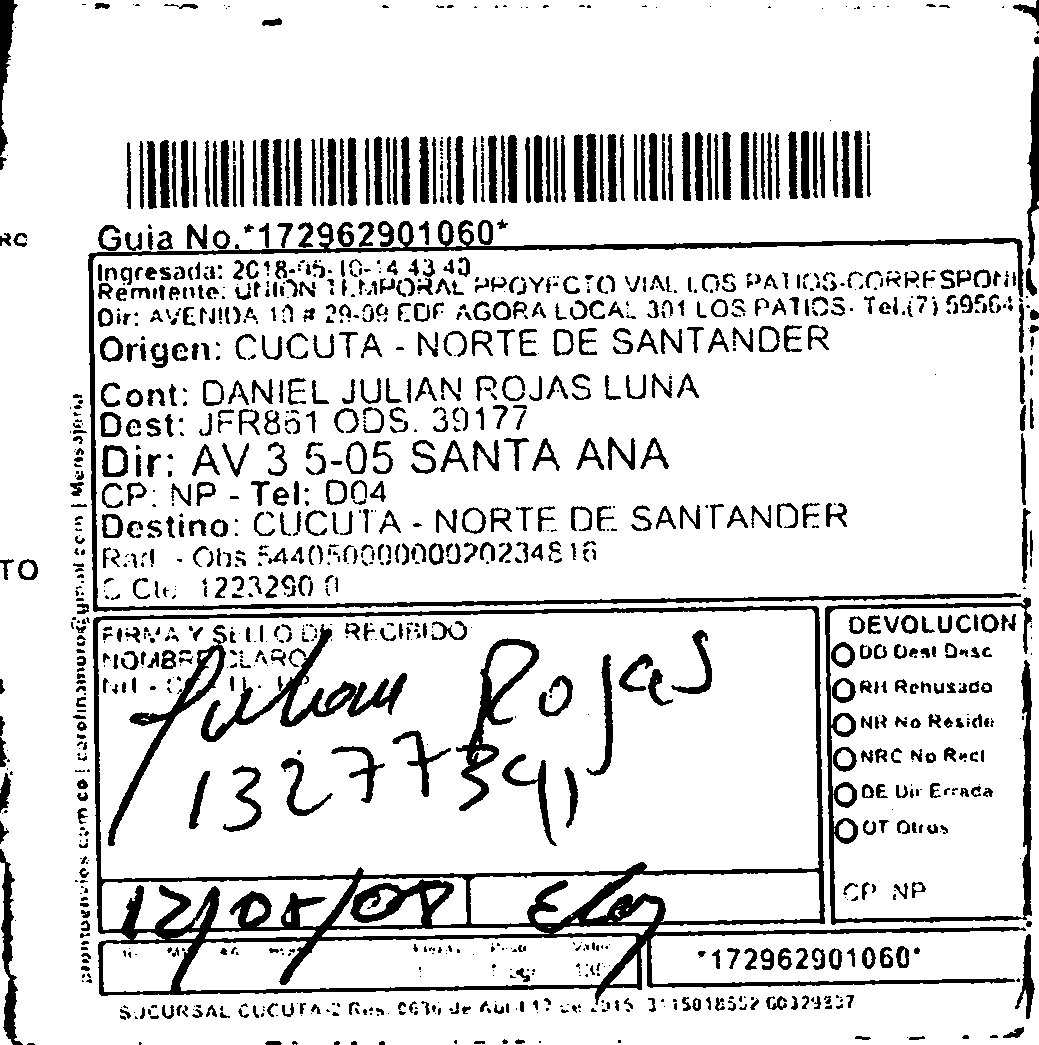 RC
Guia No.*172962901060*
Ingresada: 2018-05-10-14 43 40
Remitente: UNION TEMPORAL PROYECTO VIAL LOS PATIOS-CORRESPON
Dir: AVENIDA 10 # 29-09 EDF AGORA LOCAL 301 LOS PATIOS- Tel.(7) 59564
Origen: CUCUTA - NORTE DE SANTANDER
Cont: DANIEL JULIAN ROJAS LUNA
Dest: JFR861 ODS. 39177
Dir: AV 3 5-05 SANTA ANA
CP: NP - Tel: D04
Destino: CUCUTA - NORTE DE SANTANDER
Rad. - Obs 54405000000020234816
TO
C Cte: 1223290 0
FIRMA Y SELLO DE RECIBIDO
NOMBRE CLARO
Julian Rojas
DEVOLUCION
DD Dest Desc
RH Rehusado
NR No Reside
NRC No Recl
DE Dir Errada
OT Otros
CP NP
*172962901060*
SUCURSAL CUCUTA-2 Res. 0636 de Abril 17 de 2015